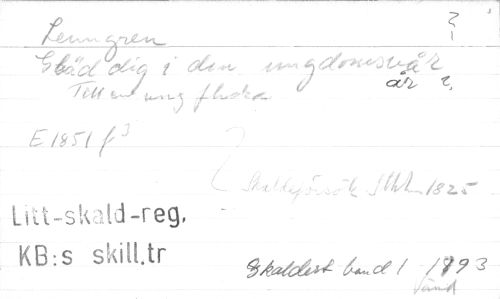 Lenngren ?
Gläd dig i din ungdomsvår
Till en ung flicka år ?
E1851 f 3
Skaldeförsök Sthlm 1825
Litt-skald-reg.
KB:s skill.tr
Skaldest band 1 1893